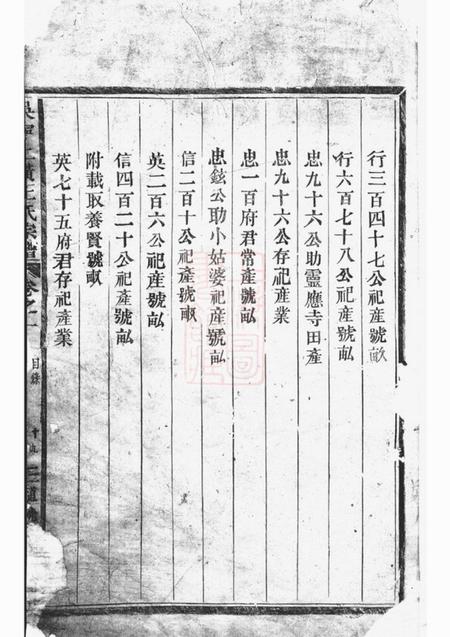 行三百四十七公祀產號畝
行六百七十八公祀產號畝
忠九十六公助靈應寺田產
忠九十六公存祀產業
忠一百府君常產號畝
忠鉉公助小姑婆祀產號畝
信二百十公祀產號畝
英二百六公祀產號畝
信四百二十公祀產號畝
附載取養賢號畝
英七十五府君存祀產業
王氏宗譜 卷之一 目錄